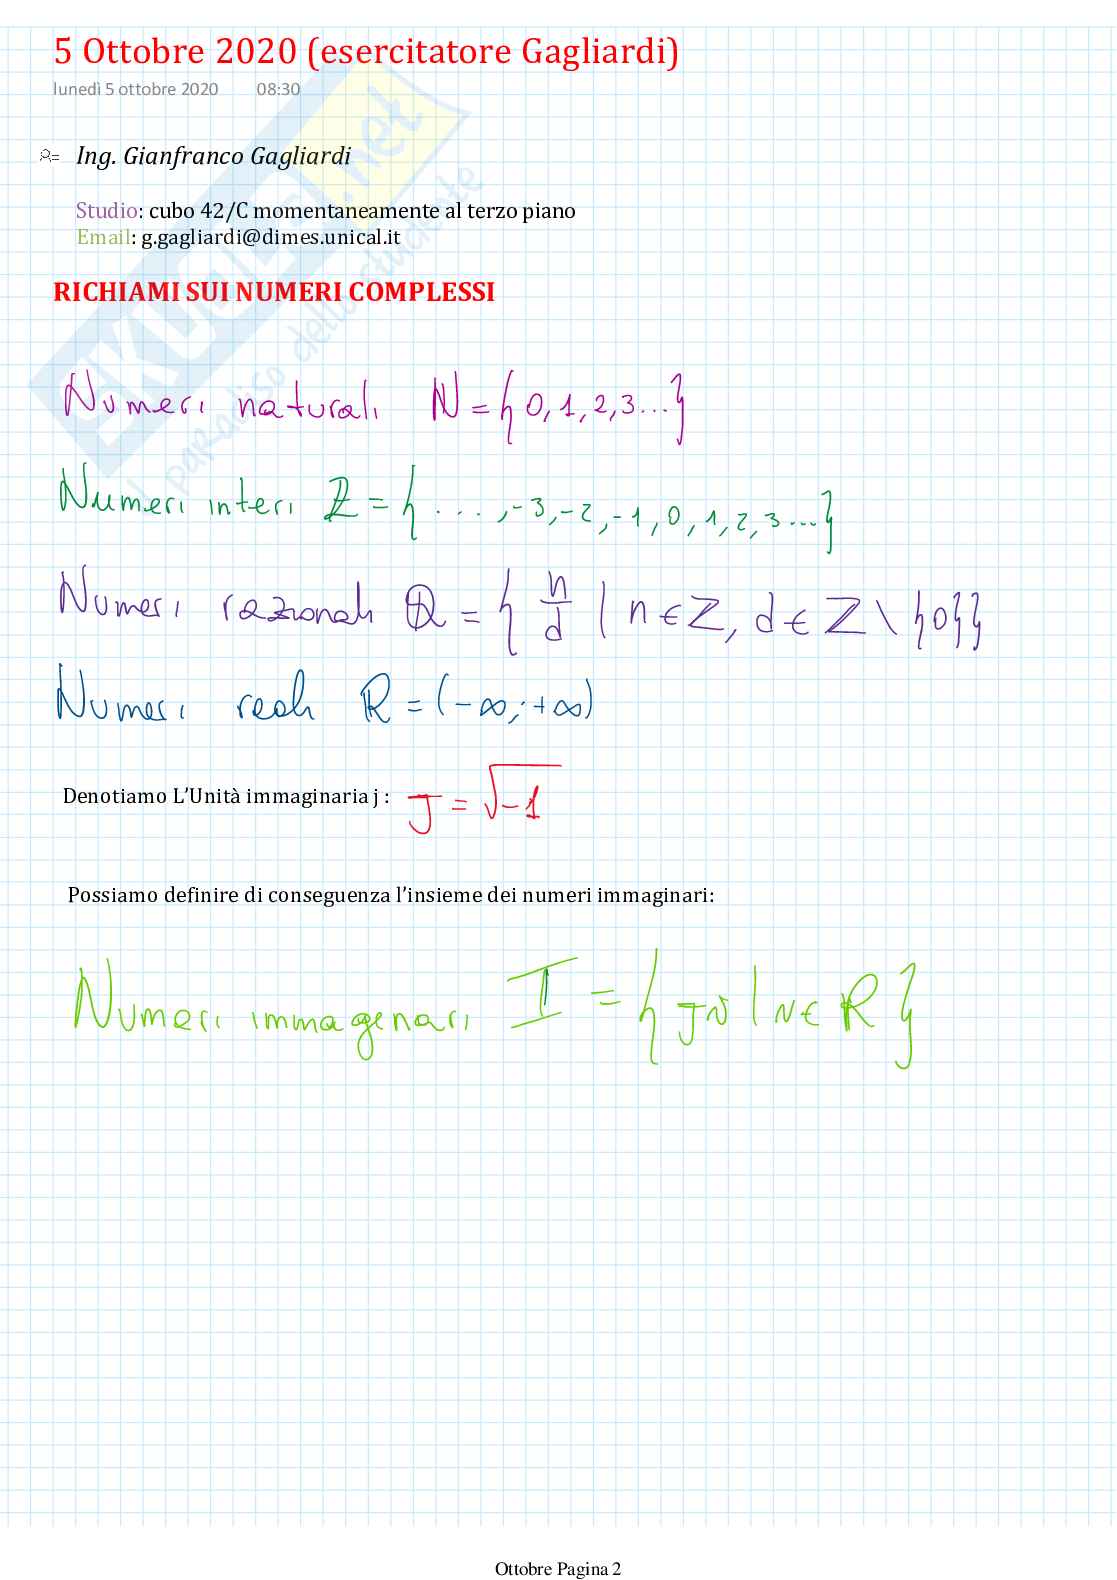 5 Ottobre 2020 (esercitatore Gagliardi)
lunedì 5 ottobre 2020 08:30
Ing. Gianfranco Gagliardi
Studio: cubo 42/C momentaneamente al terzo piano
Email: g.gagliardi@dimes.unical.it
RICHIAMI SUI NUMERI COMPLESSI
Numeri naturali ℕ = {0, 1, 2, 3...}
Numeri interi ℤ = {..., -3, -2, -1, 0, 1, 2, 3...}
Numeri razionali ℚ = {n/d | n ∈ Z, d ∈ Z \ {0}}
Numeri reali ℝ = (-∞; +∞)
Denotiamo L'Unità immaginaria j : J = √-1
Possiamo definire di conseguenza l'insieme dei numeri immaginari:
Numeri immagenari I = {JN | N ∈ ℝ}
Ottobre Pagina 2
SKUOLA.net
il paradiso dello studente